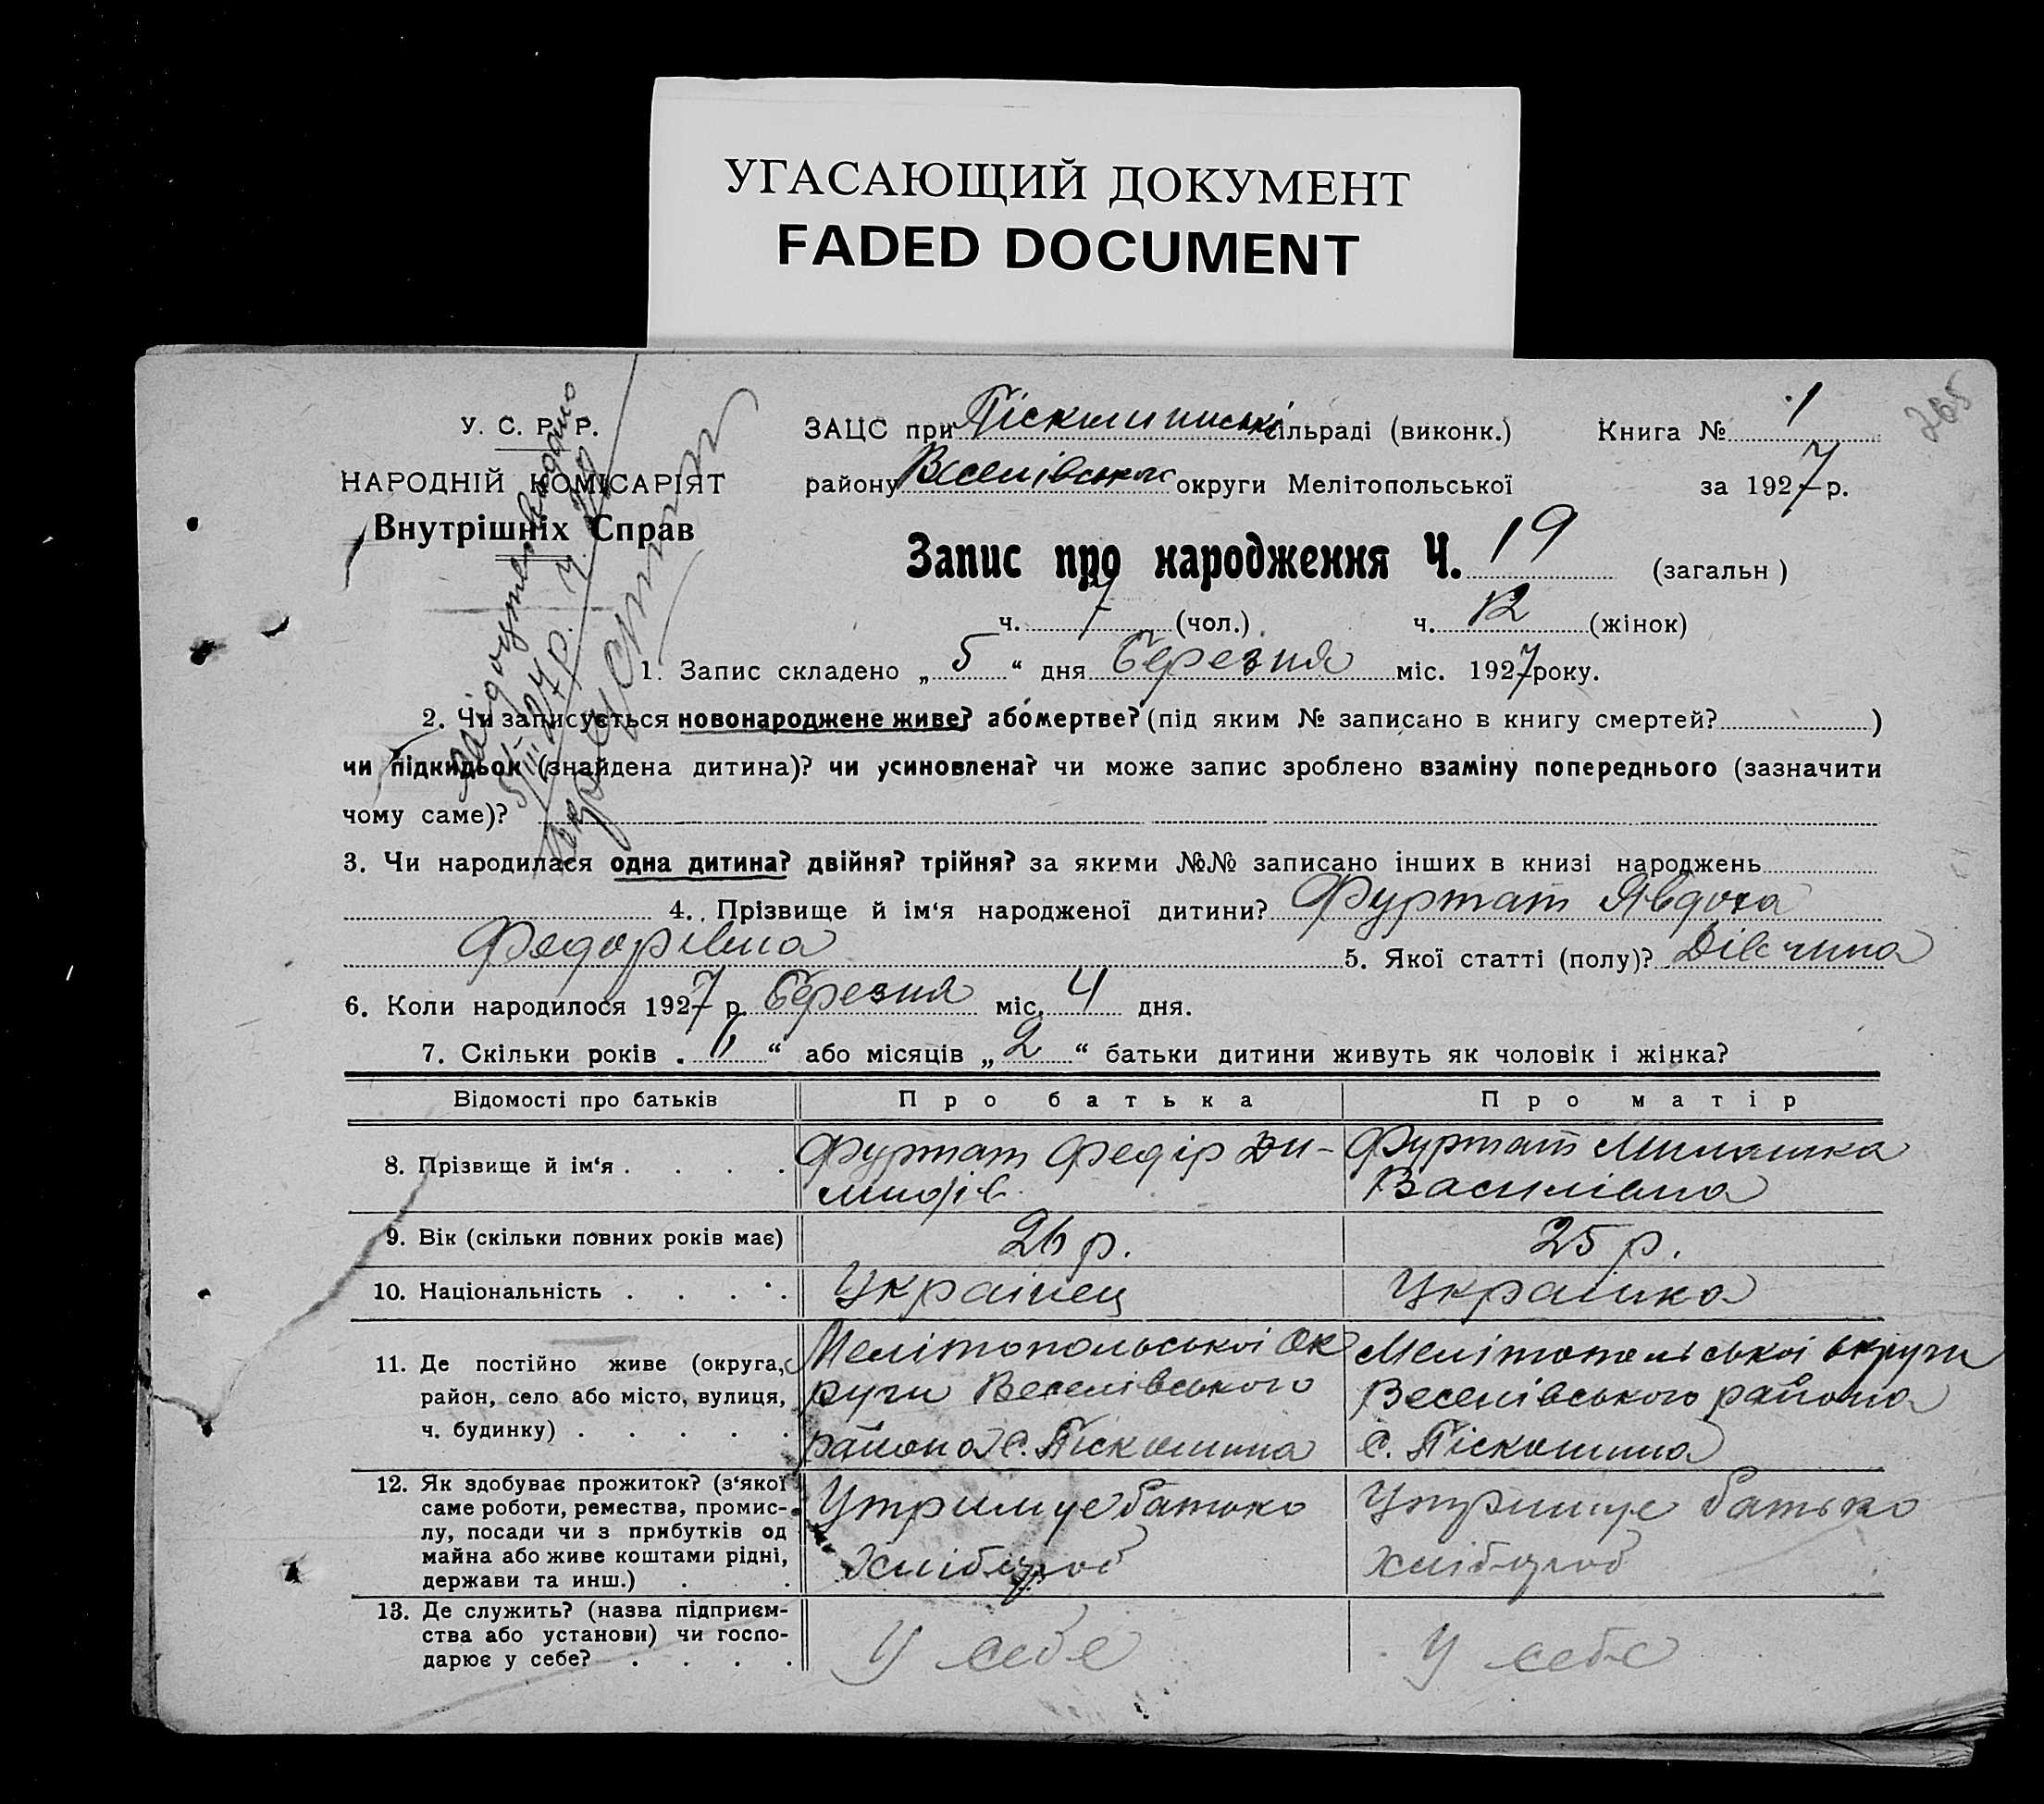 УГАСАЮЩИЙ ДОКУМЕНТ
FADED DOCUMENT
265
У. С. Р. Р.
НАРОДНІЙ КОМІСАРІЯТ
Внутрішніх Справ
ЗАЦС при Піскошинській сільраді (виконк.) Книга № 1
району Веселівського округи Мелітопольської за 1927 р.
Запис про народження Ч. 19 (загальн)
ч. 7 (чол.) ч. 12 (жінок)
1. Запис складено „ 5 “ дня Березня міс. 1927 року.
2. Чи записується новонароджене живе? або мертве? (під яким № записано в книгу смертей? )
чи підкидьок (знайдена дитина)? чи усиновлена? чи може запис зроблено взаміну попереднього (зазначити
чому саме)?
3. Чи народилася одна дитина? двійня? трійня? за якими №№ записано інших в книзі народжень
4. Прізвище й ім‘я народженої дитини? Фуртат Явдоха
Федорівна 5. Якої статті (полу)? Дівчина
6. Коли народилося 1927 р. Березня міс. 4 дня.
7. Скільки років „ “ або місяців „ 2 “ батьки дитини живуть як чоловік і жінка?
Відомості про батьків Про батька Про матір
8. Прізвище й ім‘я . . . . Фуртат Федір Ди- Фуртат
Василівна
9. Вік (скільки повних років має) 26 р. 25 р.
10. Національність . . . . Українец Українка
11. Де постійно живе (округа, Мелітопольської Ок Мелітопольської округи
район, село або місто, вулиця, руги Веселівського Веселівського района
ч. будинку) . . . . . района С. Піскошина С. Піскошина
12. Як здобуває прожиток? (з‘якої
саме роботи, ремества, промис- Утримує батько Утримує батько
лу, посади чи з прибутків од
майна або живе коштами рідні, Хлібороб Хлібороб
держави та инш.) . . .
13. Де служить? (назва підприєм-
ства або установи) чи госпо- У себе У себе
дарює у себе? . . . .
видано
5/III 27 р.